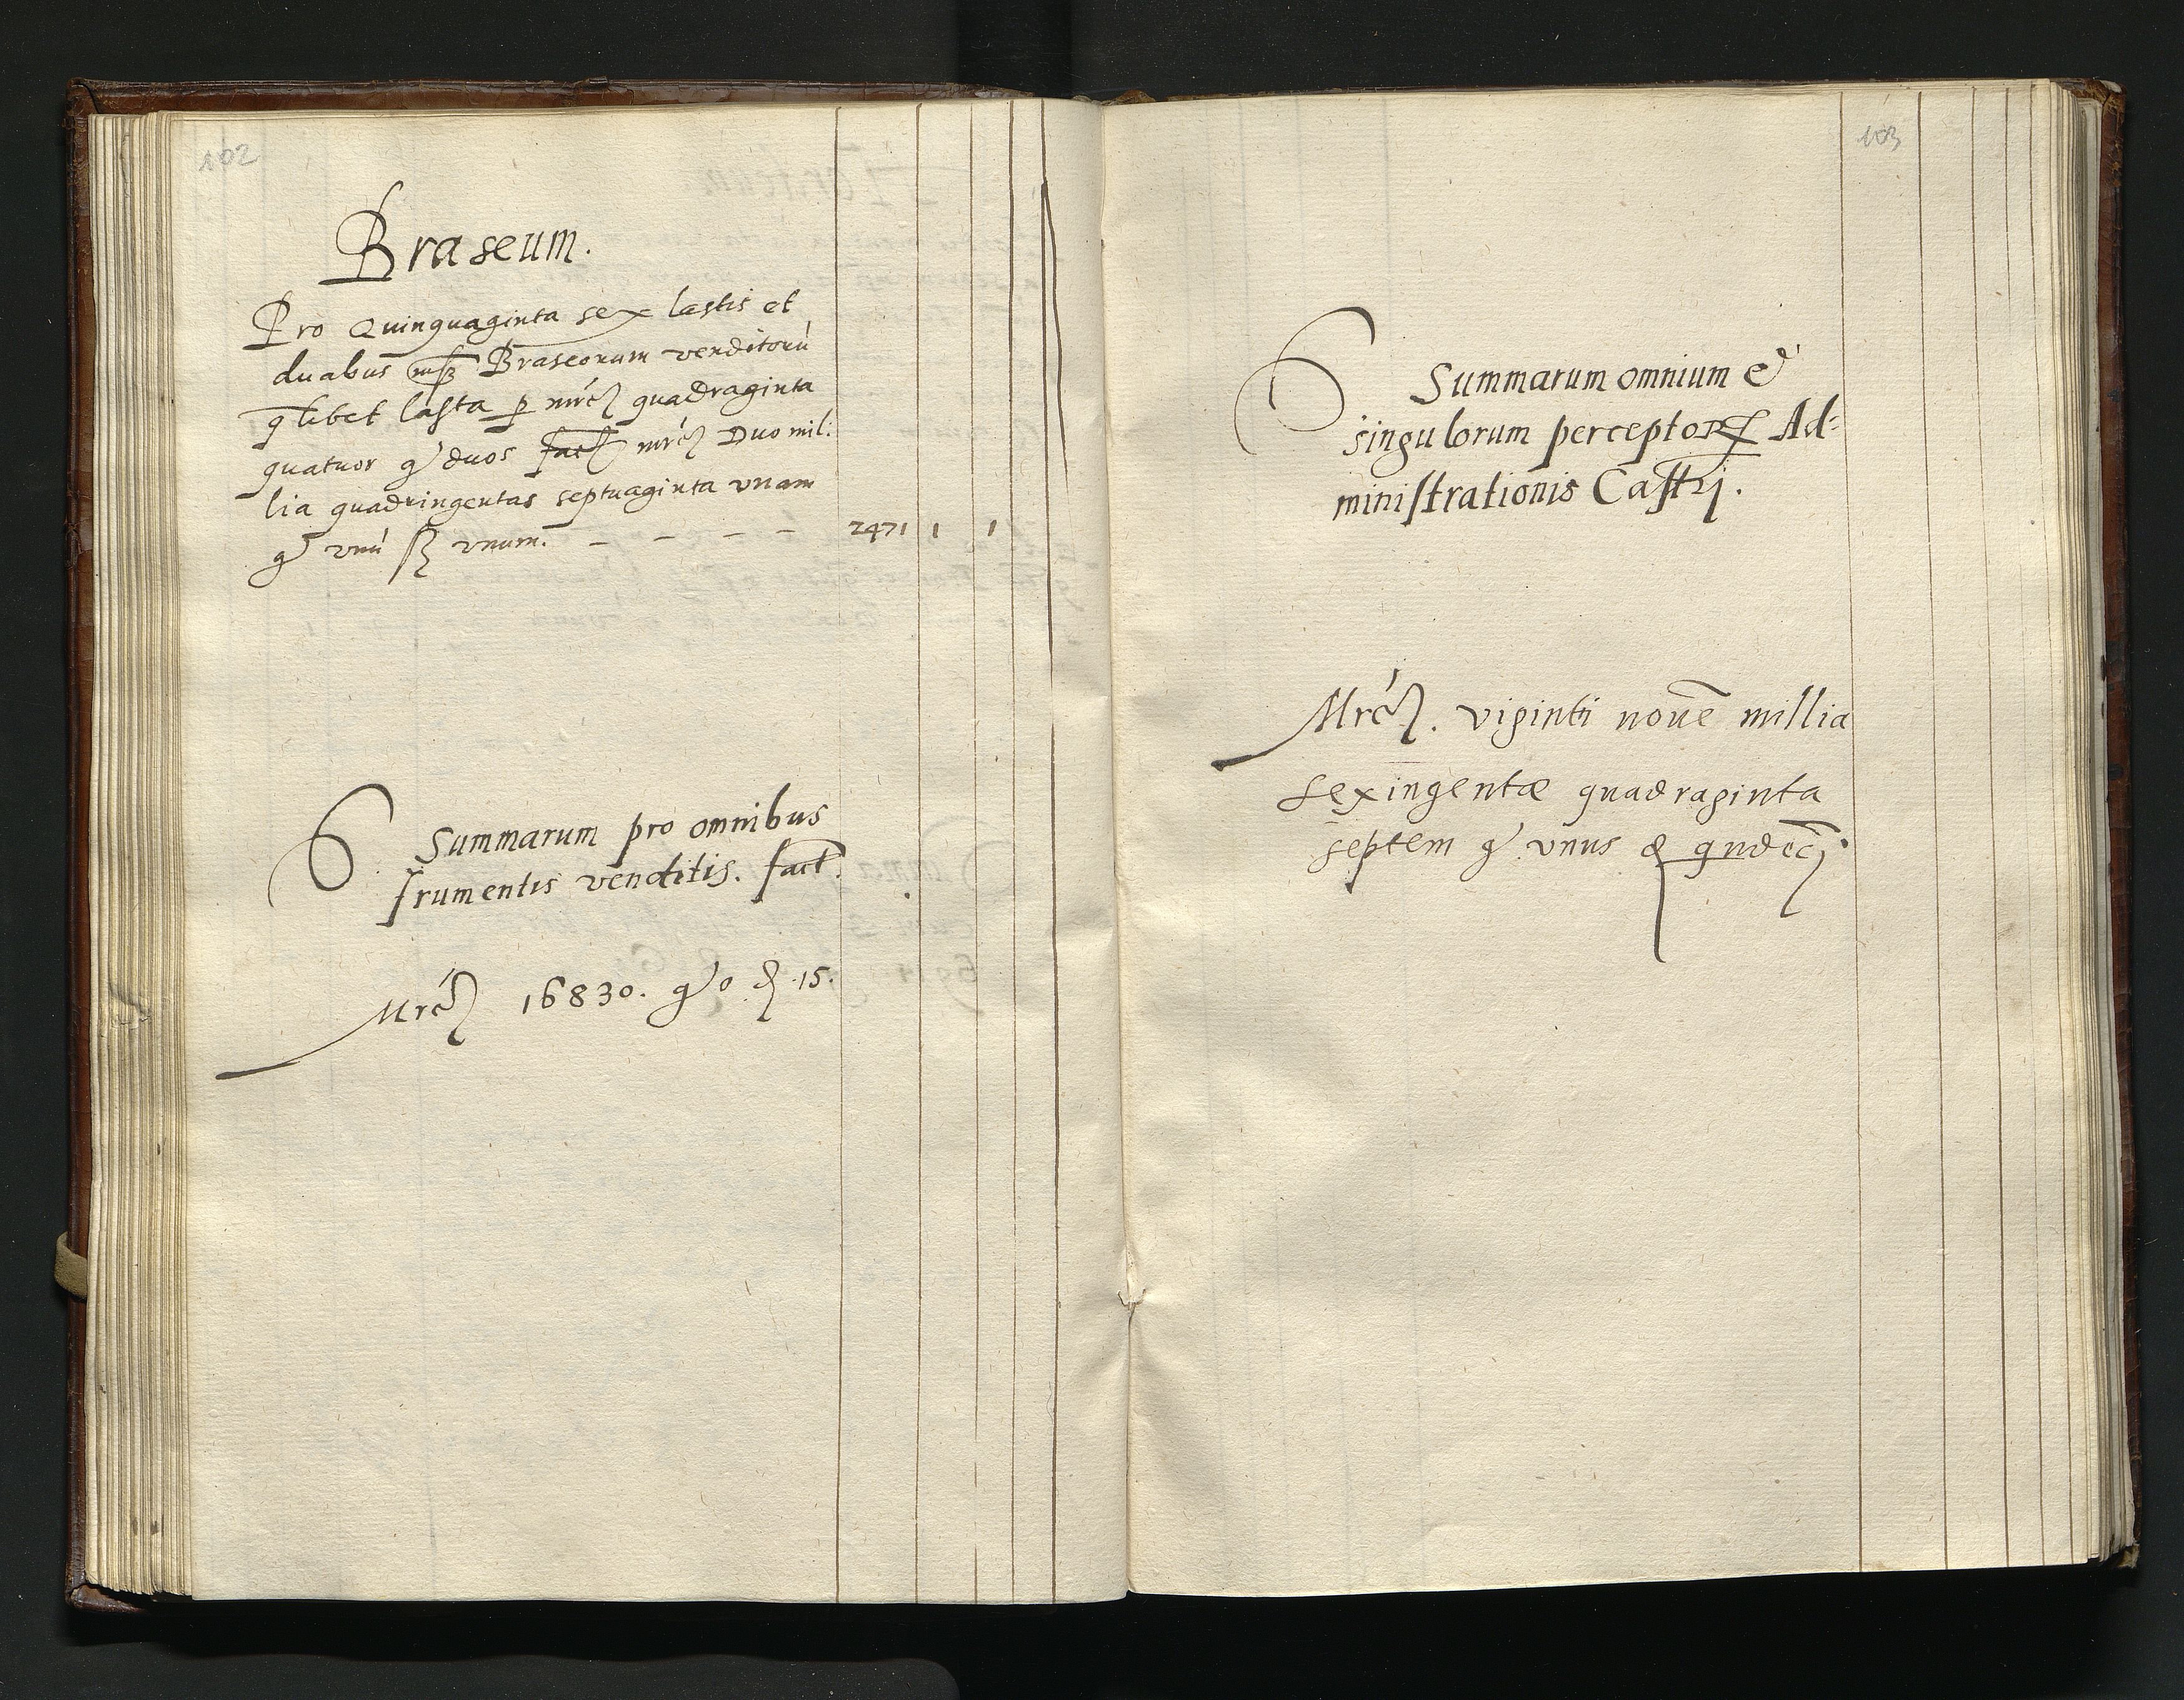 102
Braseum.
Pro Quinquaginta sex lastis et
duabus Braseorum venditorū
qlibet lasta p mrc quadraginta
quatuor gr duos fact mrc Duo mil:
lia quadringentas septuaginta vnam
gr vnū ß vnum. – – – – 2471 1 1
Summarum pro omnibus
frumentis venditis. fact.
Mrc 16830. gr 0 ₰ .15.
103
Summarum omnium et
singulorum perceptor Ad=
ministrationis Castri.
Mrc. viginti nouē millia
sexingentæ quadraginta
septem gr vnus ₰